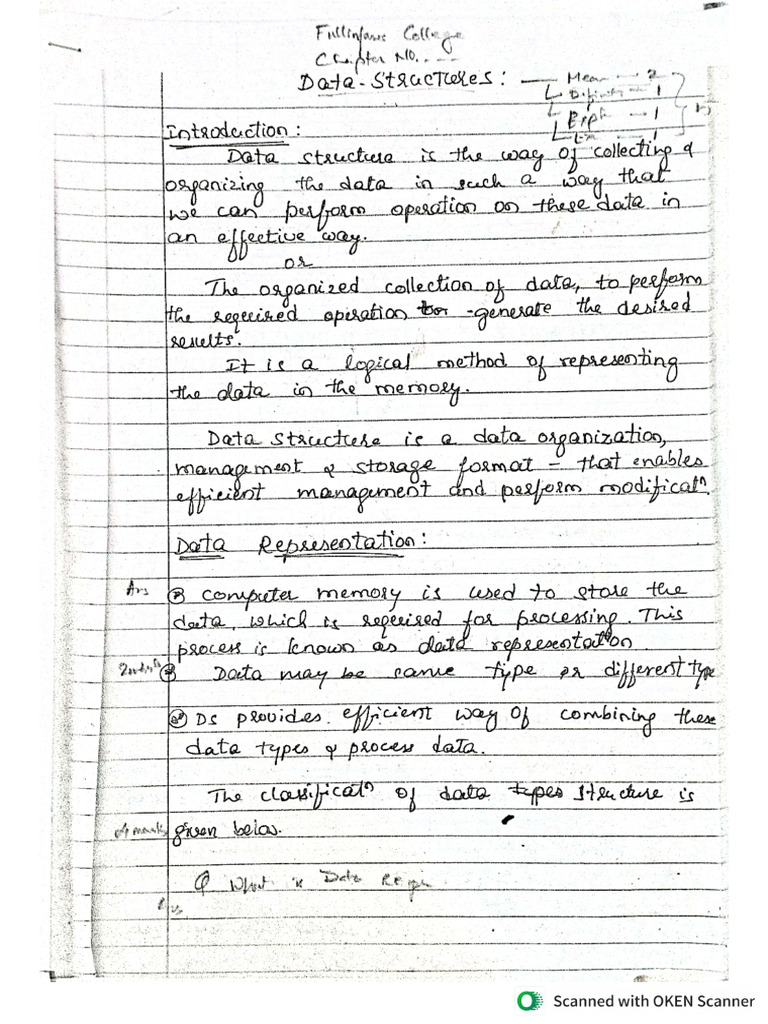 College
Chapter No. ...
Data-Structures: — Mean — 2
— 1
Exp — 1
Ex — 1
Introduction:
Data structure is the way of collecting &
organizing the data in such a way that
we can perform operation on these data in
an effective way.
or
The organized collection of data, to perform
the required operation to generate the desired
results.
It is a logical method of representing
the data in the memory.
Data structure is a data organization,
management & storage format – that enables
efficient management and perform modificatn.
Data Representation:
Ans computer memory is used to store the
data, which is required for processing. This
process is known as data representation
Data may be same type or different type
DS provides efficient way of combining these
data types & process data.
The classificatn of data types structure is
4 marks given below.
Q What is Data Rep
Ans
Scanned with OKEN Scanner